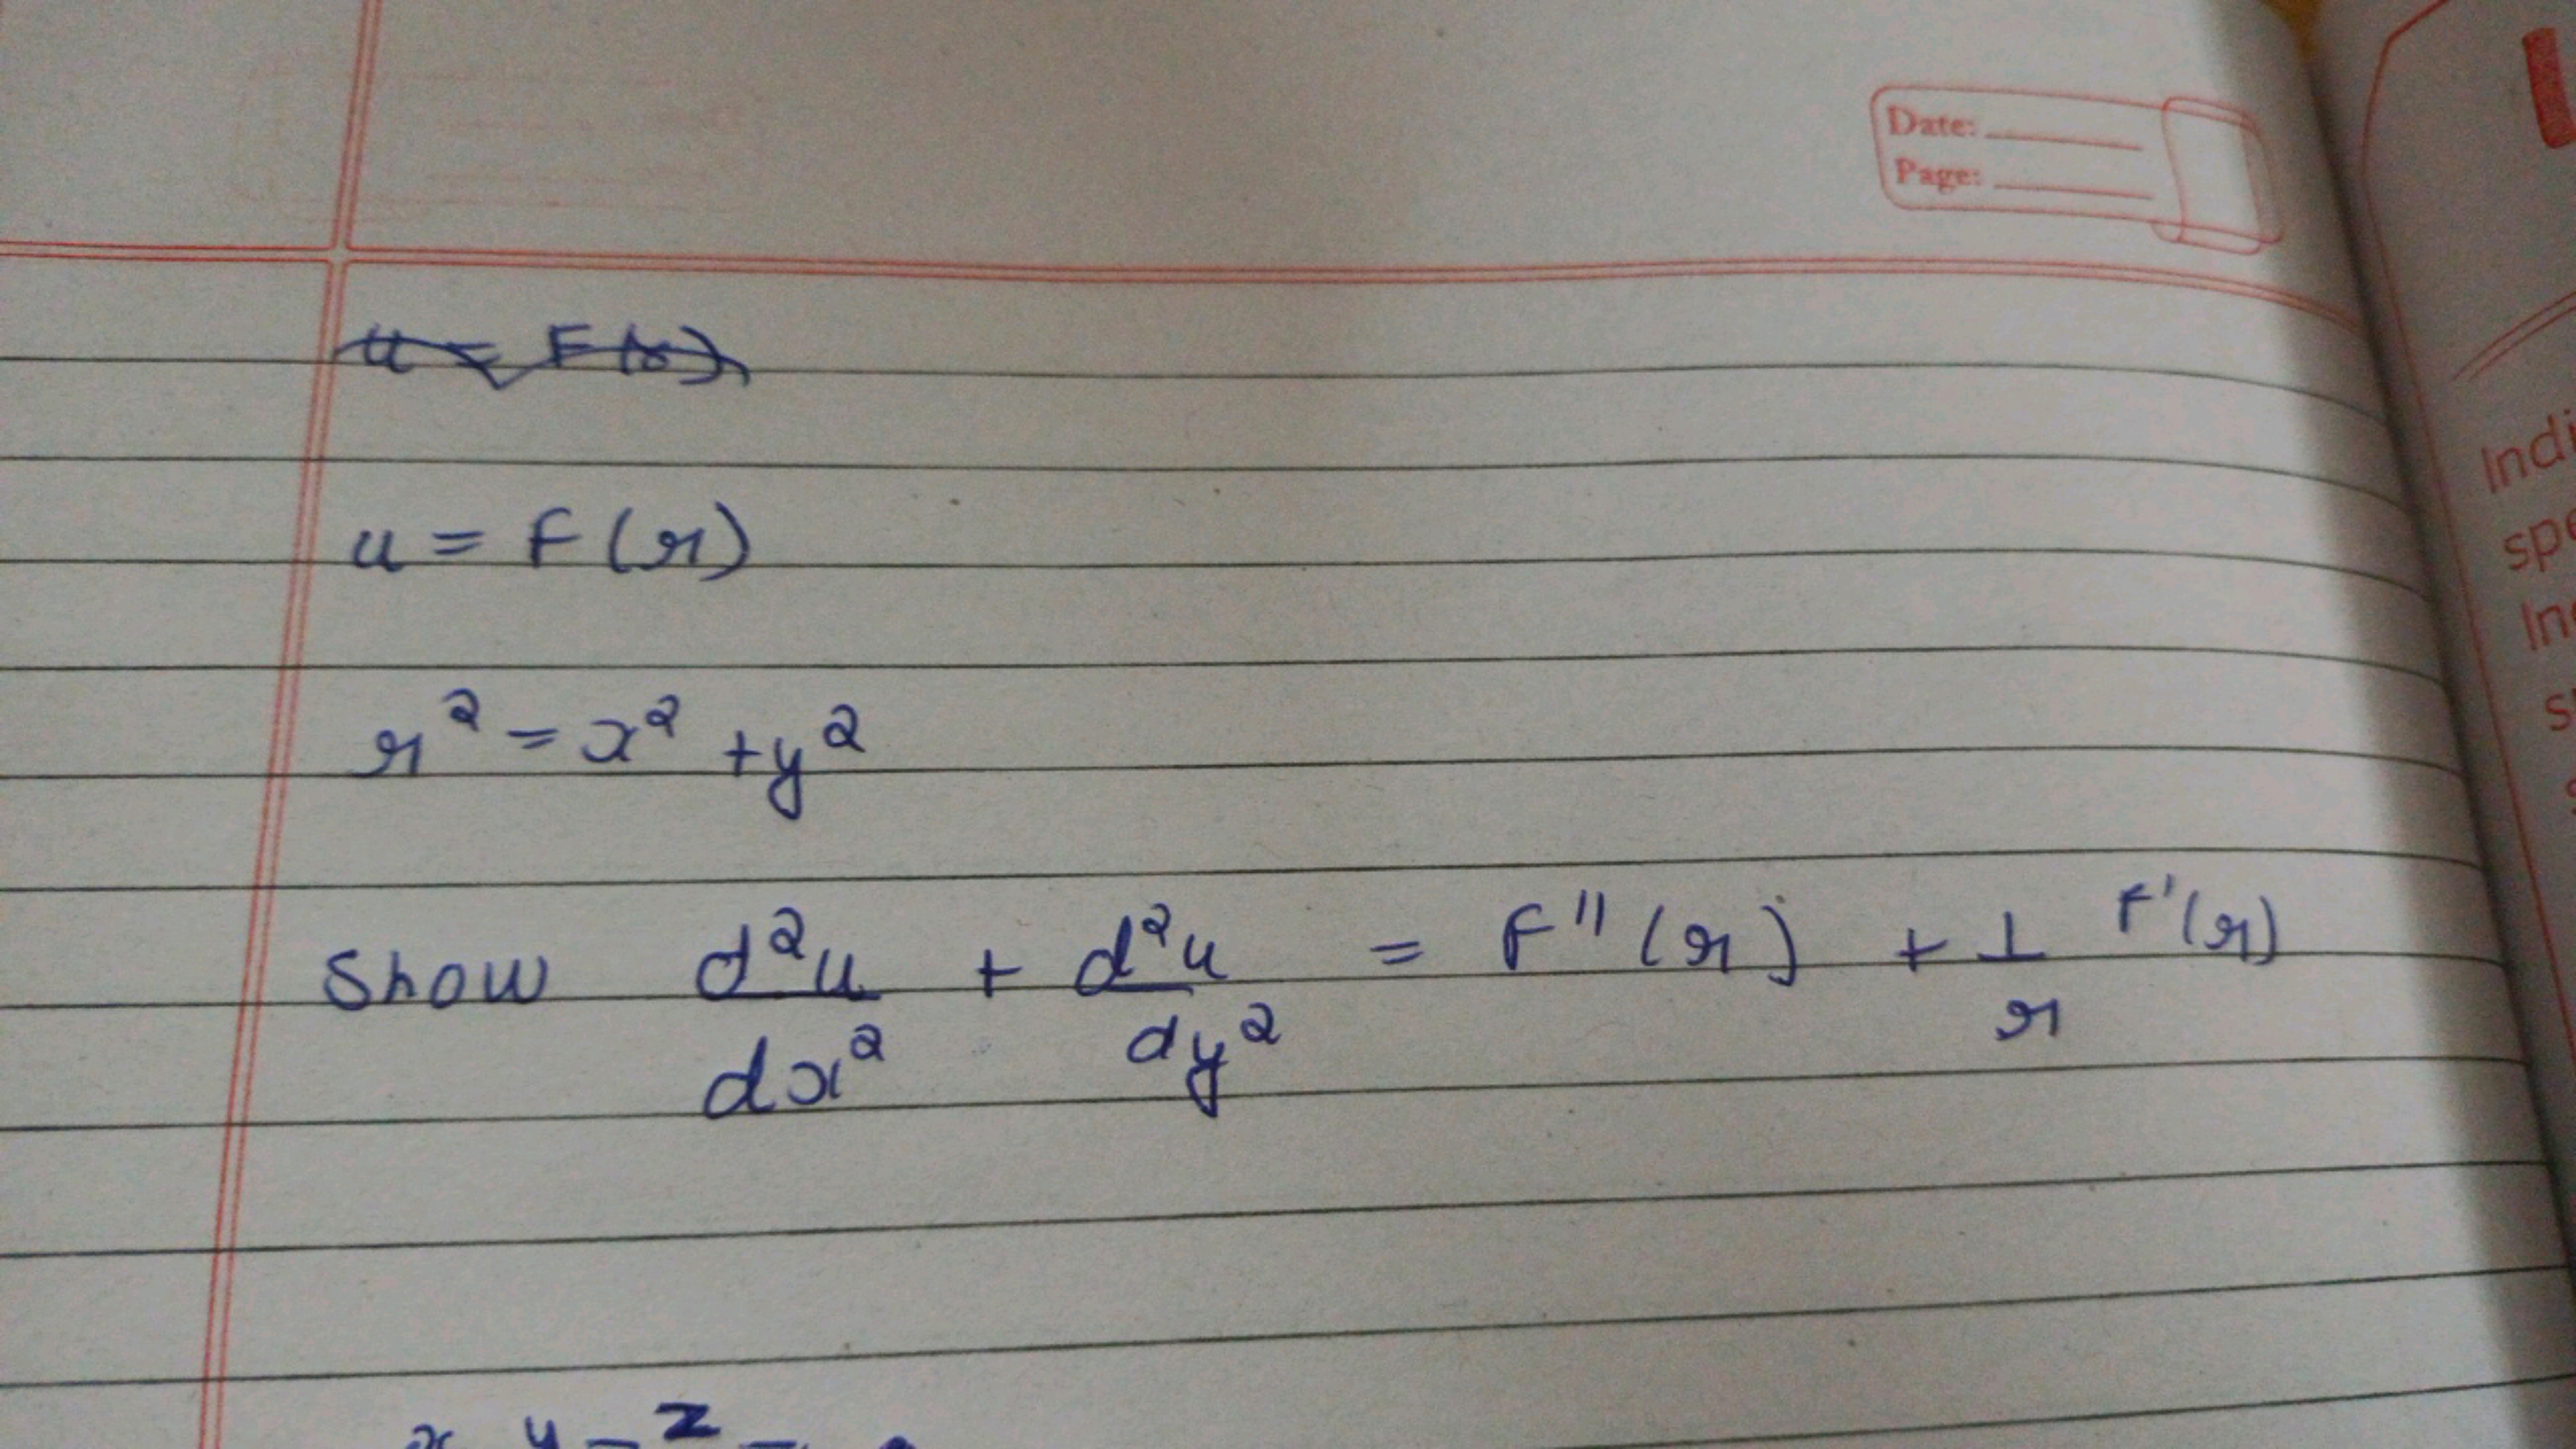 Date:
Page:
u = F(r)
u = F(r)
r² = x² + y²
Show d²u/dx² + d²u/dy² = F''(r) + 1/r F'(r)
Indi
spe
In
s